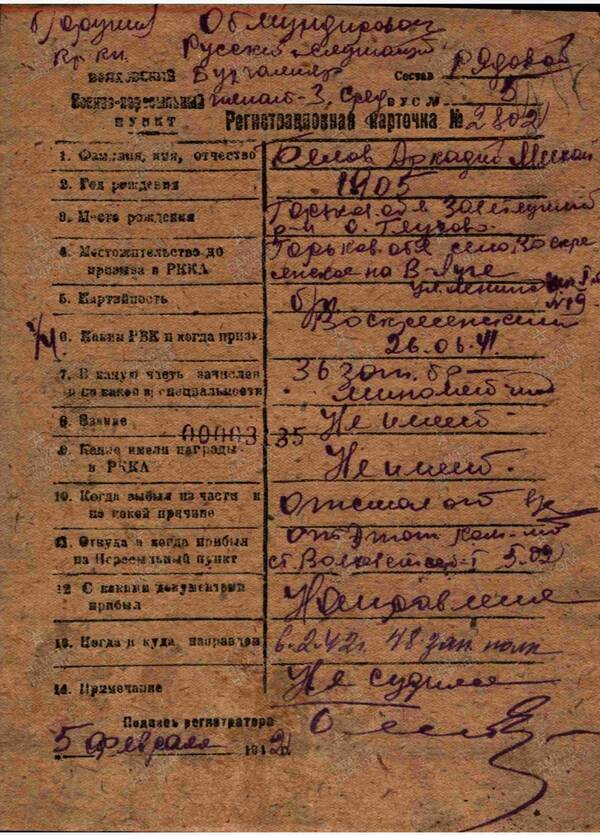 б/оружия Обмундирован
Кр. кн. Русский Служащий
ВОЛХОВСКИЙ Бухгалтер Состав рядовой
Военно-пересыльный ВУС № 5
ПУНКТ Регистрационная карточка № 2802
1. Фамилия, имя, отчество Белов Аркадий
2. Год рождения 1905
3. Место рождения Горьков. обл
р-н с. Глухово
4. Местожительство до Горьков. обл село Воскре
призыва в РККА сенское на Ветлуге
ул. Ленина № 19
5. Партийность б/п.
6. Каким РВК и когда призв. Воскресенский
26.06.41
7. В какую часть зачислен 36 зап. бр
и по какой специальности минометчик
8. Звание Не имеет
00003 35
9. Какие имели награды Не имеет.
в РККА
10. Когда выбыл из части и отстал от
по какой причине
11. Откуда и когда прибыл
на Пересыльный пункт ст. 5.02
12 С какими документами Направление
прибыл
13. Когда и куда направлен 6.2.42г. 48 зап полк
14. Примечание Не судился
Подпись регистратора
5 февраля 1942